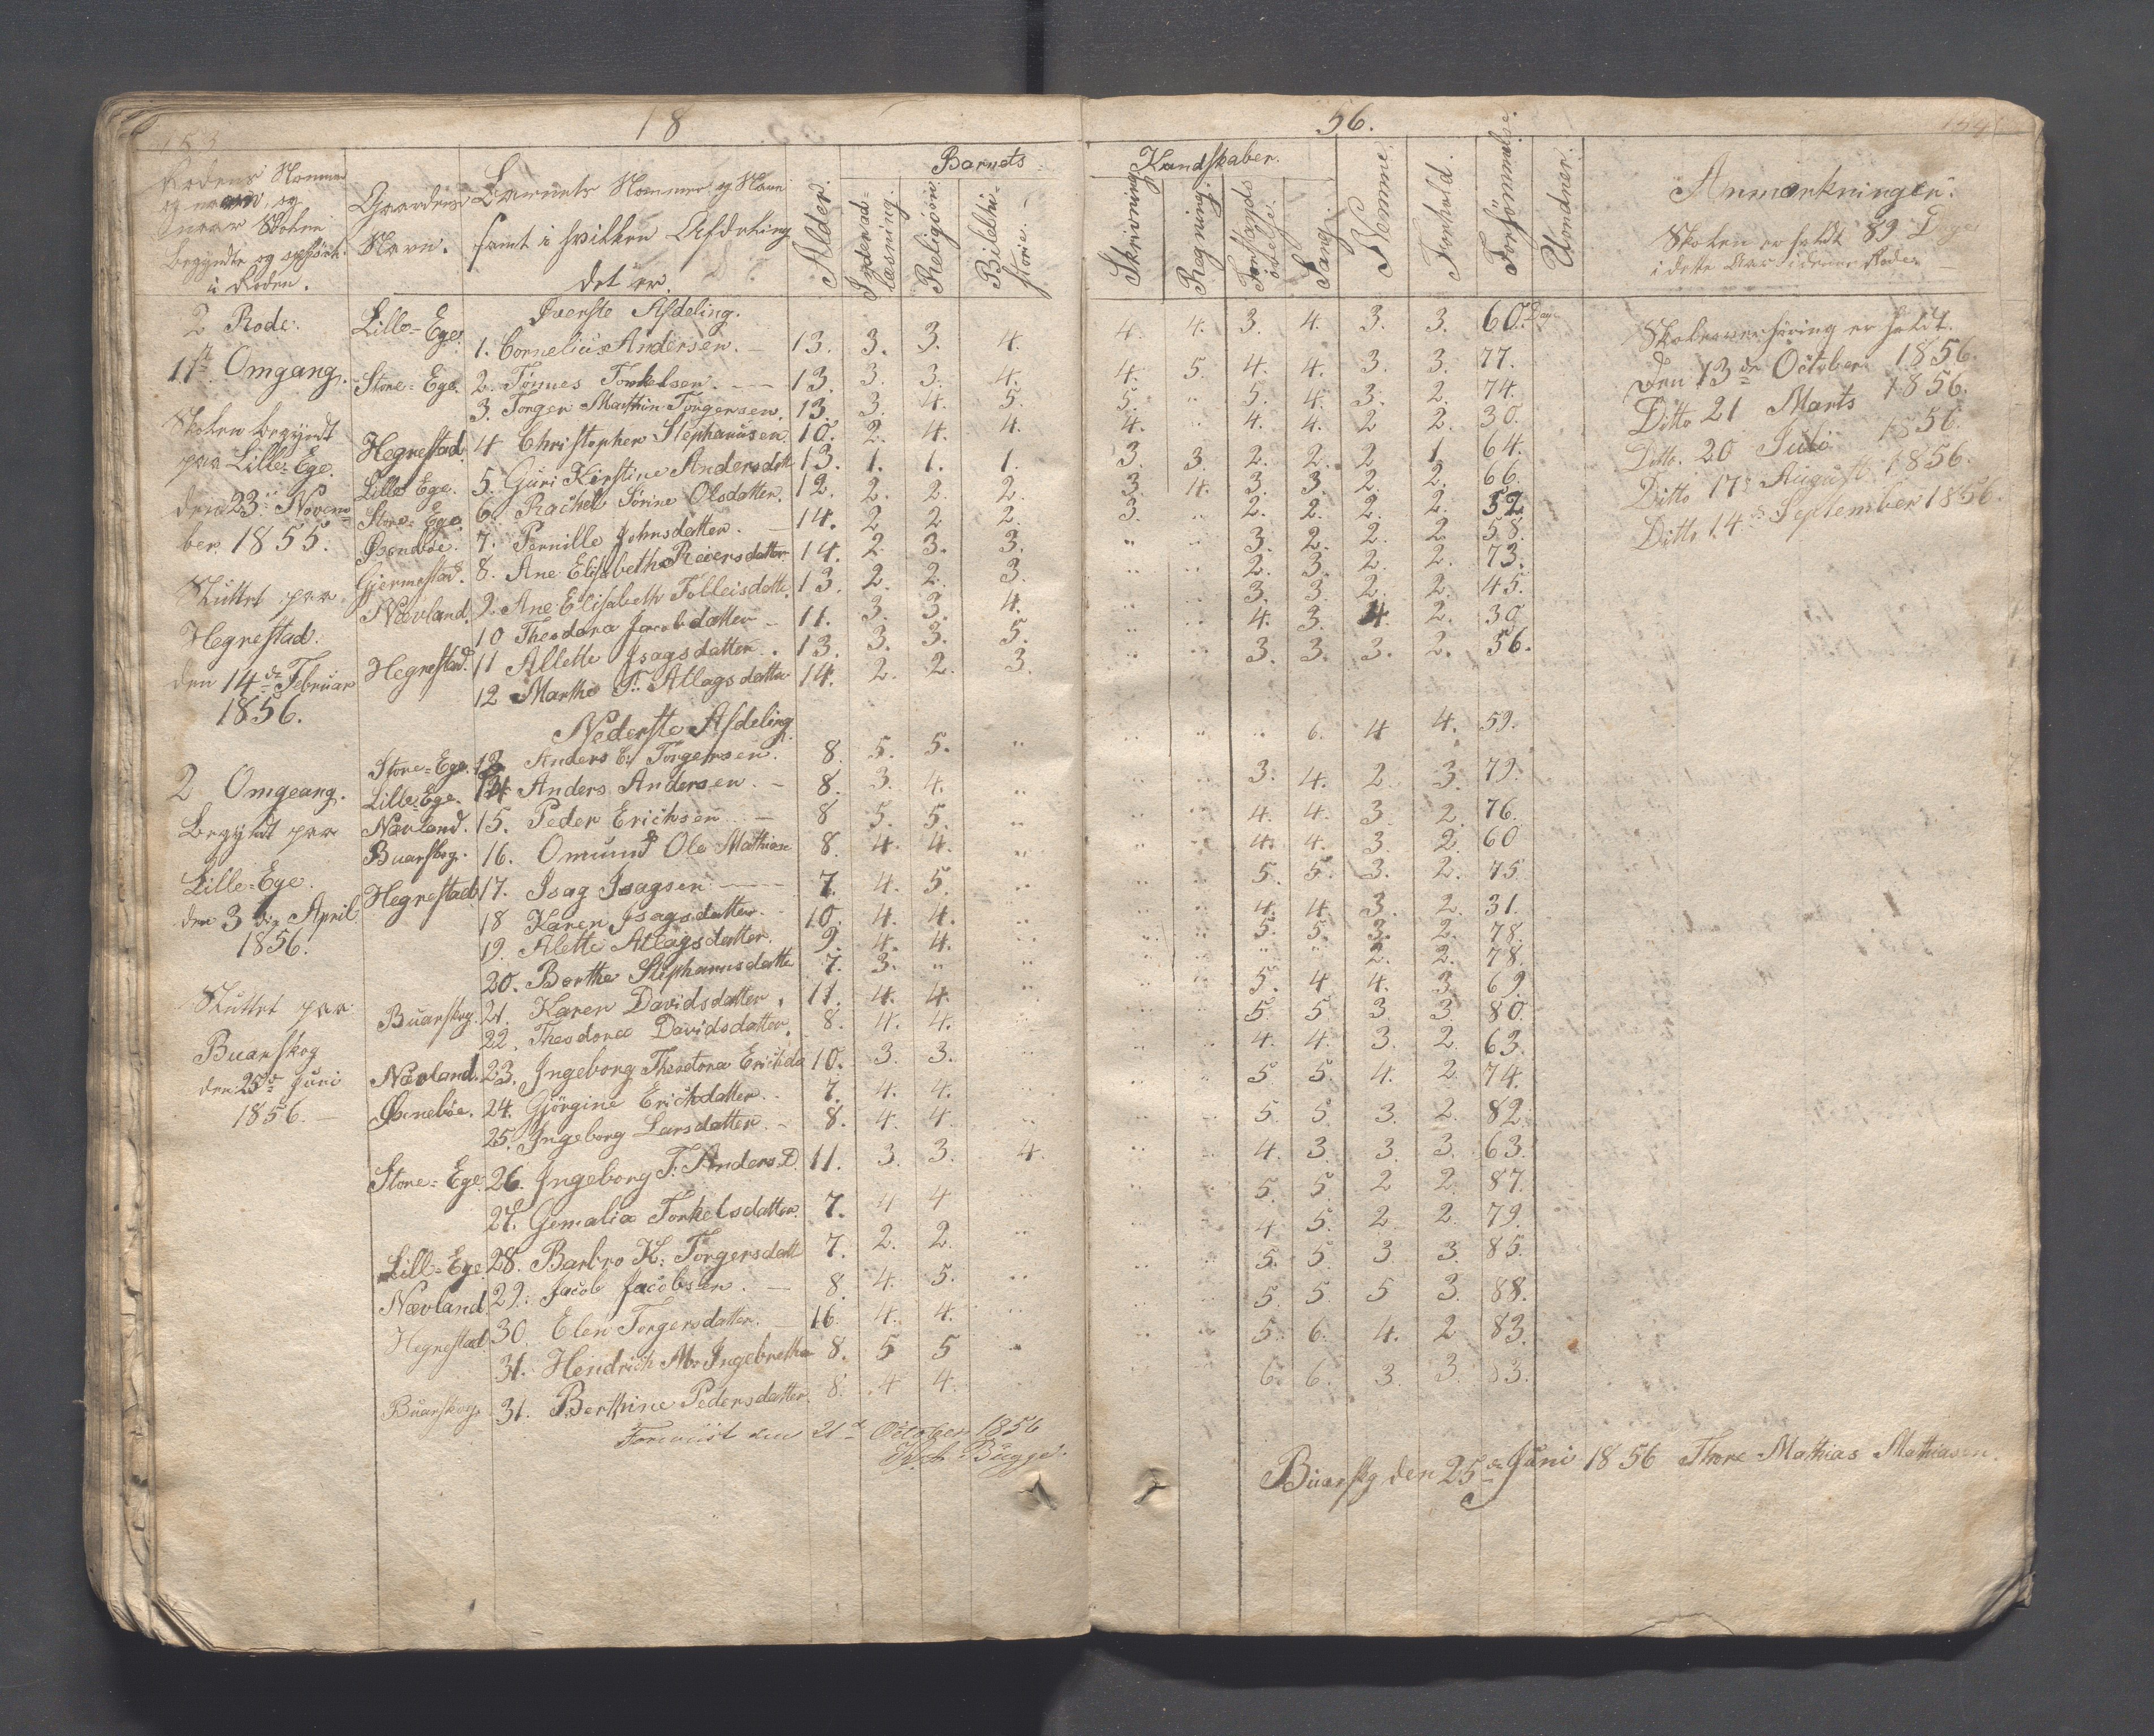 18 56.
153
Rodens Nommer
og naar, og
hvor Skolen
begyndte og ophørte
i Roden.
Gaardens
Navn.
Barnets Nommer og Navn
samt i hvilken Afdeling
det er.
Alder.
Barnets Kundskaber.
Indenad-
læsning.
Religion.
Bibelhi-
storie.
Skrivning.
Regning.
Forstands
øvelse.
Sang.
Nemme.
Forhold.
Forsømmelse.
Udondner.
Anmærkninger.
Skolen er holdt 89 Dage
i dette Aar i denne Roden
2 Rode.
11te Omgang.
Skolen begyndt
paa Lille-Ege.
den 23de Novem-
ber 1855.
Sluttet paa
Hegrestad.
den 14de Februar
1856.
2 Omgeang.
Begyndt paa
Lille-Ege.
den 3die April
1856.
Sluttet paa
Buarskog
den 25de Juni
1856.
Øverste Afdeling.
Lille-Ege. 1. Cornelius Andersen. 13. 3. 3. 4. 4. 4. 3. 4. 3. 3. 60. Dage
Store-Ege. 2. Tönnes Torkelsen. 13. 3. 3. 4. 4. 5. 4. 4. 3. 3. 77.
3. Torger Marthin Torgersen. 13. 3. 4. 5. 5. " 5. 4. 3. 2. 74.
Hegrestad. 4 Christopher Stephanusen. 10. 2. 4. 4. 4. " 4. 4. 2 2. 30.
Lille Ege. 5. Guri Kirstine Andersdtt 13. 1. 1. 1. 3. 3. 2. 2. 2 1. 64.
Store-Ege. 6. Rachel Sörine Olsdatter. 12. 2. 2. 2. 3. 4. 3. 3. 2. 2. 66.
Øvrebøe. 7. Pernille Johnsdatter. 14. 2 2 2. 3. " 2. 2. 2. 2. 52
Gjermestad. 8. Ane Elisabeth Reiersdatter 14. 2. 3. 3. " " 3. 2. 2. 2 58.
Nævland. 9. Ane Elisabeth Tolleisdatte. 13. 2. 2. 3. " " 2. 3. 2. 2. 73.
10 Theodora Jacobdatter 11. 3. 3. 4. " " 3. 3. 2. 2. 45.
Hegrestad. 11 Allette Isagsdatter. 13. 3. 3. 5. " " 4. 3. 4. 2. 30.
12 Marthe T. Atlagsdatter 14. 2. 2. 3. " " 3. 3. 3. 2. 56.
Nederste Afdeling.
Store-Ege. 13 Anders C. Torgersen. 8. 5. 5. " " " " 6. 4 4. 59.
Lille-Ege. 14 Anders Andersen. 8. 3. 4. " " " 3. 4. 2 3. 79.
Nævland. 15. Peder Erichsen 8 5. 5. " " " 4. 4. 3. 2. 76.
Buarskog. 16. Omund Ole Mathiase 8. 4. 4. " " " 4. 4. 3. 2. 60
Hegrestad 17. Isag Isagsen 7. 4. 5. " " " 5. 5. 3. 2. 75.
18 Karen Isagsdatter. 10. 4. 4. " " " 4. 4. 3. 2. 31.
19. Alette Atlagsdatter. 9. 4. 4. " " " 5. 5. 3. 2. 78.
20. Berthe Stephanusdatte 7. 3. " " " " " " 2. 2. 78.
Buarskog. 21. Karen Davidsdatter. 11. 4. 4. " " " 5. 4 4. 3 69.
22. Theodorea Davidsdatter. 8. 4. 4. " " " 5. 5. 3. 3. 80.
Nævland. 23. Ingeborg Theodora Erichda 10. 3. 3. " " " 4. 4. 3. 2. 63.
Øvrebøe. 24. Gjörgine Erichdatter. 7. 4. 4. " " " 5. 5. 4. 2. 74.
25. Ingeborg Larsdatter. 8. 4. 4. " " " 5. 5. 3. 2. 82.
Store-Ege. 26. Ingeborg T. Anders.D. 11. 3. 3. 4. " " 4. 3. 3. 3. 63.
27. Gemalia Torkelsdatter. 7. 4 4 " " " 5. 5. 2 2. 87.
Lill-Ege. 28. Barbro K. Torgersdatt 7. 2. 2. " " " 4 5. 2. 2. 79.
Nævland. 29. Jacob Jacobsen. 8. 4. 5. " " " 5. 5 3 3. 85.
Hegrestad 30. Elen Torgersdatter. 16. 4. 4. " " " 5. 5 5 3. 88.
31. Hendrich M. Ingebretse 8. 5 5 " " " 5. 6. 4. 2 83.
Buarskog. 31. Berthine Pedersdatter. 8. 4 4. " " " 6. 6. 3. 3. 83.
Foreviist den 21de October 1856
Bugge.
Skolens er holdt.
Den 13de October 1856.
Ditto 21 Marts 1856.
Ditto. 20 Juli 1856.
Ditto 17de August 1856.
Ditto 14de September 1856.
Buarskg den 25de Juni 1856 Thore Mathias Mathiasen.